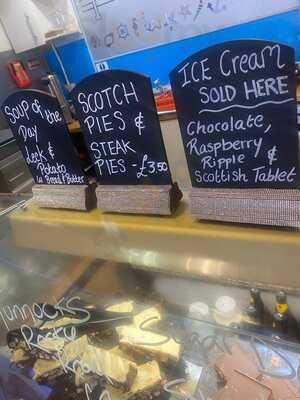 SOUP of the
Day
Leek &
Potato
w Bread & Butter
SCOTCH
PIES &
STEAK
PIES - £3.50
ICE CREAM
SOLD HERE
Chocolate,
Raspberry
Ripple &
Scottish Tablet
Tunnock's
Rocky